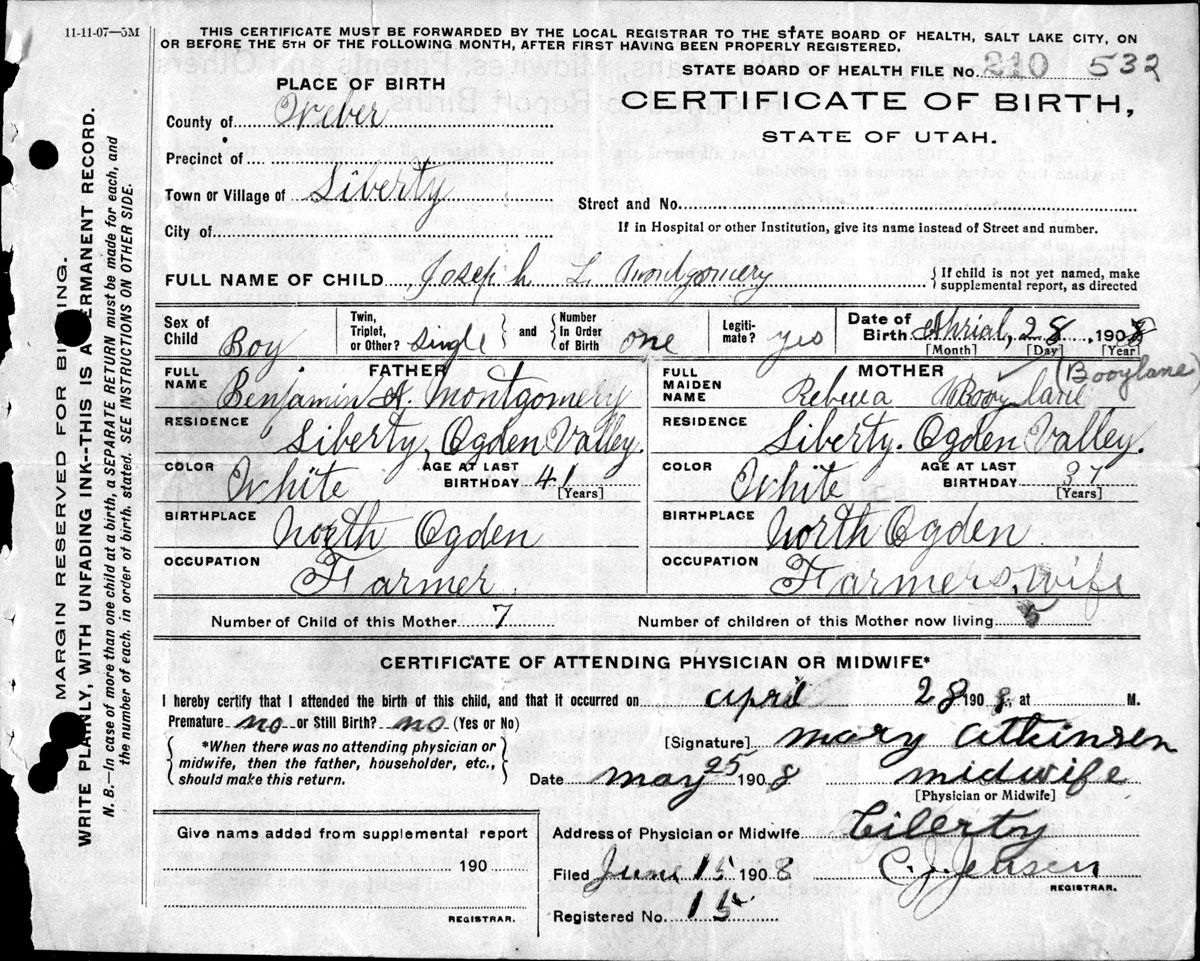 11-11-07—5M
THIS CERTIFICATE MUST BE FORWARDED BY THE LOCAL REGISTRAR TO THE STATE BOARD OF HEALTH, SALT LAKE CITY, ON
OR BEFORE THE 5TH OF THE FOLLOWING MONTH, AFTER FIRST HAVING BEEN PROPERLY REGISTERED.
STATE BOARD OF HEALTH FILE No. 210 532
PLACE OF BIRTH
CERTIFICATE OF BIRTH,
STATE OF UTAH.
County of Weber
Precinct of
Town or Village of Liberty
Street and No.
City of
If in Hospital or other Institution, give its name instead of Street and number.
FULL NAME OF CHILD Joseph L. Montgomery
{ If child is not yet named, make supplemental report, as directed
Sex of Child Boy
Twin, Triplet, or Other? Single
and
Number In Order of Birth one
Legitimate? yes
Date of Birth Ahrial, 28, 1908
[Month] [Day] [Year]
FATHER
FULL NAME Benjamin A. Montgomery
RESIDENCE Liberty, Ogden Valley.
COLOR White
AGE AT LAST BIRTHDAY 41 [Years]
BIRTHPLACE North Ogden
OCCUPATION Farmer.
MOTHER
FULL MAIDEN NAME Rebecca (Booylane)
RESIDENCE Liberty. Ogden Valley.
COLOR White
AGE AT LAST BIRTHDAY 37 [Years]
BIRTHPLACE North Ogden
OCCUPATION Farmers, Wife
Number of Child of this Mother 7
Number of children of this Mother now living
CERTIFICATE OF ATTENDING PHYSICIAN OR MIDWIFE*
I hereby certify that I attended the birth of this child, and that it occurred on April 28 1908, at M.
Premature no or Still Birth? no (Yes or No)
*When there was no attending physician or midwife, then the father, householder, etc., should make this return.
[Signature] Mary Atkinsen
Date May 25 1908
midwife
[Physician or Midwife]
Give name added from supplemental report
190
REGISTRAR.
Address of Physician or Midwife Liberty
Filed June 15 1908
C. J. Jensen
REGISTRAR.
Registered No. 15
MARGIN RESERVED FOR BINDING.
WRITE PLAINLY, WITH UNFADING INK--THIS IS A PERMANENT RECORD.
N. B.—In case of more than one child at a birth, a SEPARATE RETURN must be made for each, and
the number of each, in order of birth, stated. SEE INSTRUCTIONS ON OTHER SIDE.